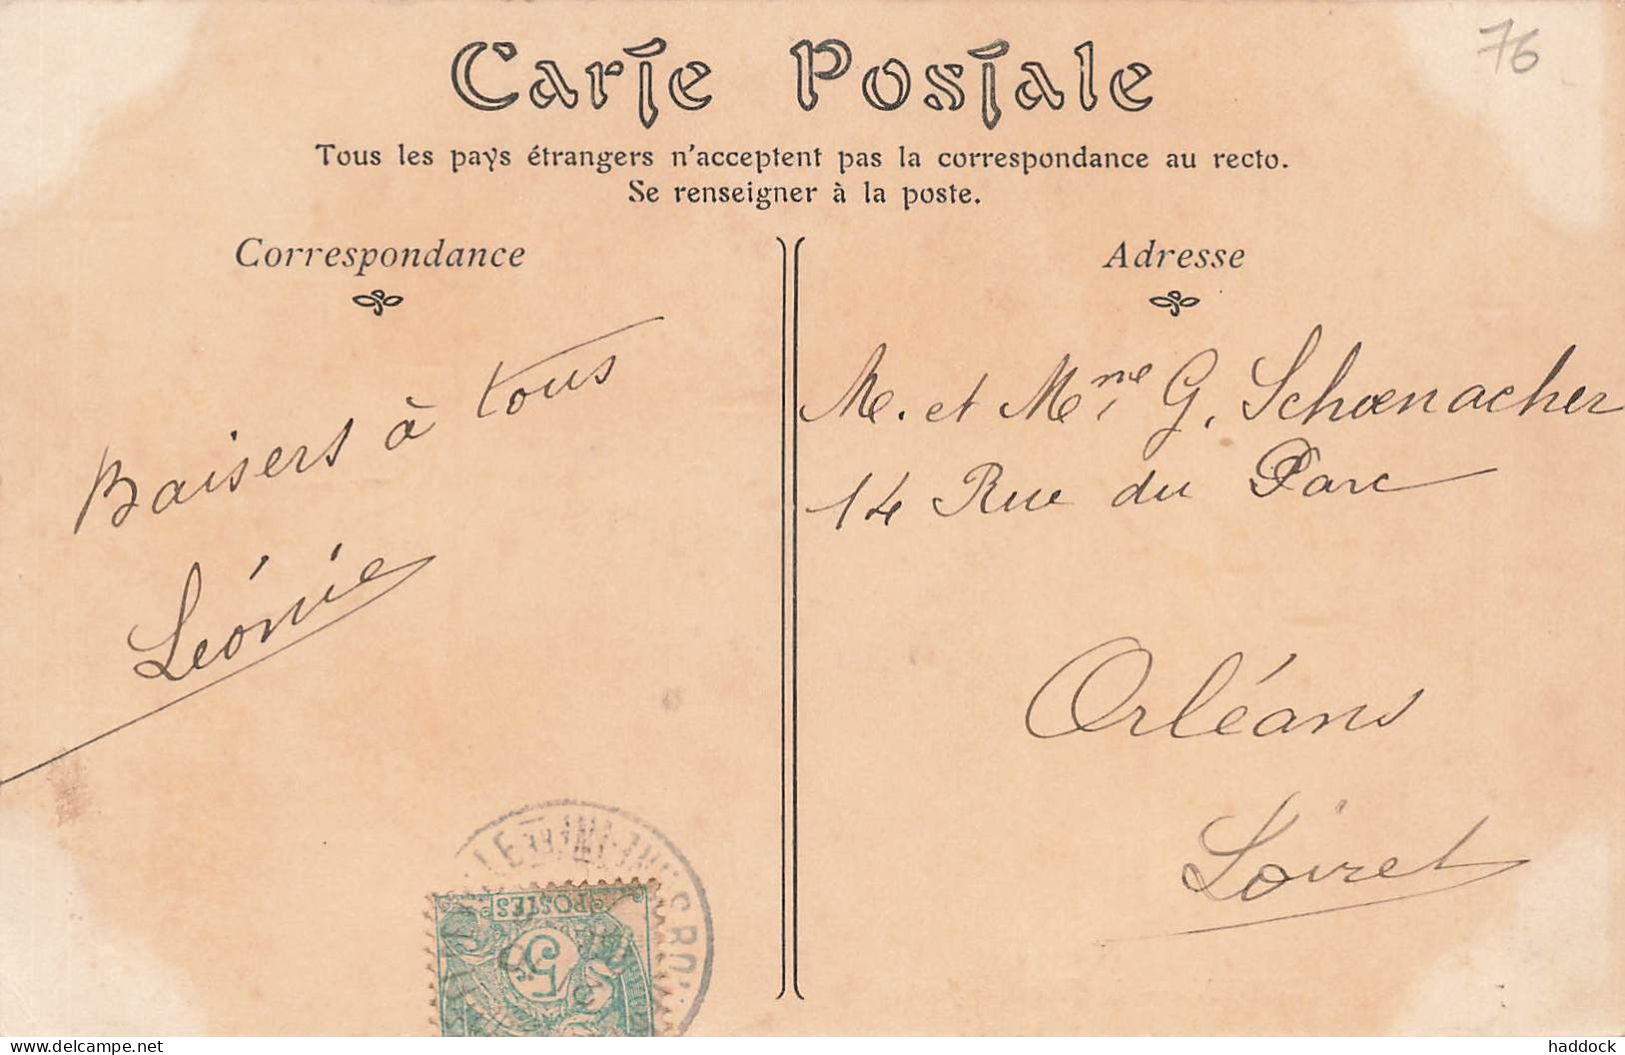 76
Carte Postale
Tous les pays étrangers n'acceptent pas la correspondance au recto.
Se renseigner à la poste.
Correspondance
Baisers à tous
Léonie
Adresse
M. et Mme G. Schœnacher
14 Rue du Parc
Orléans
Loiret
POSTES
5
delcampe.net
haddock